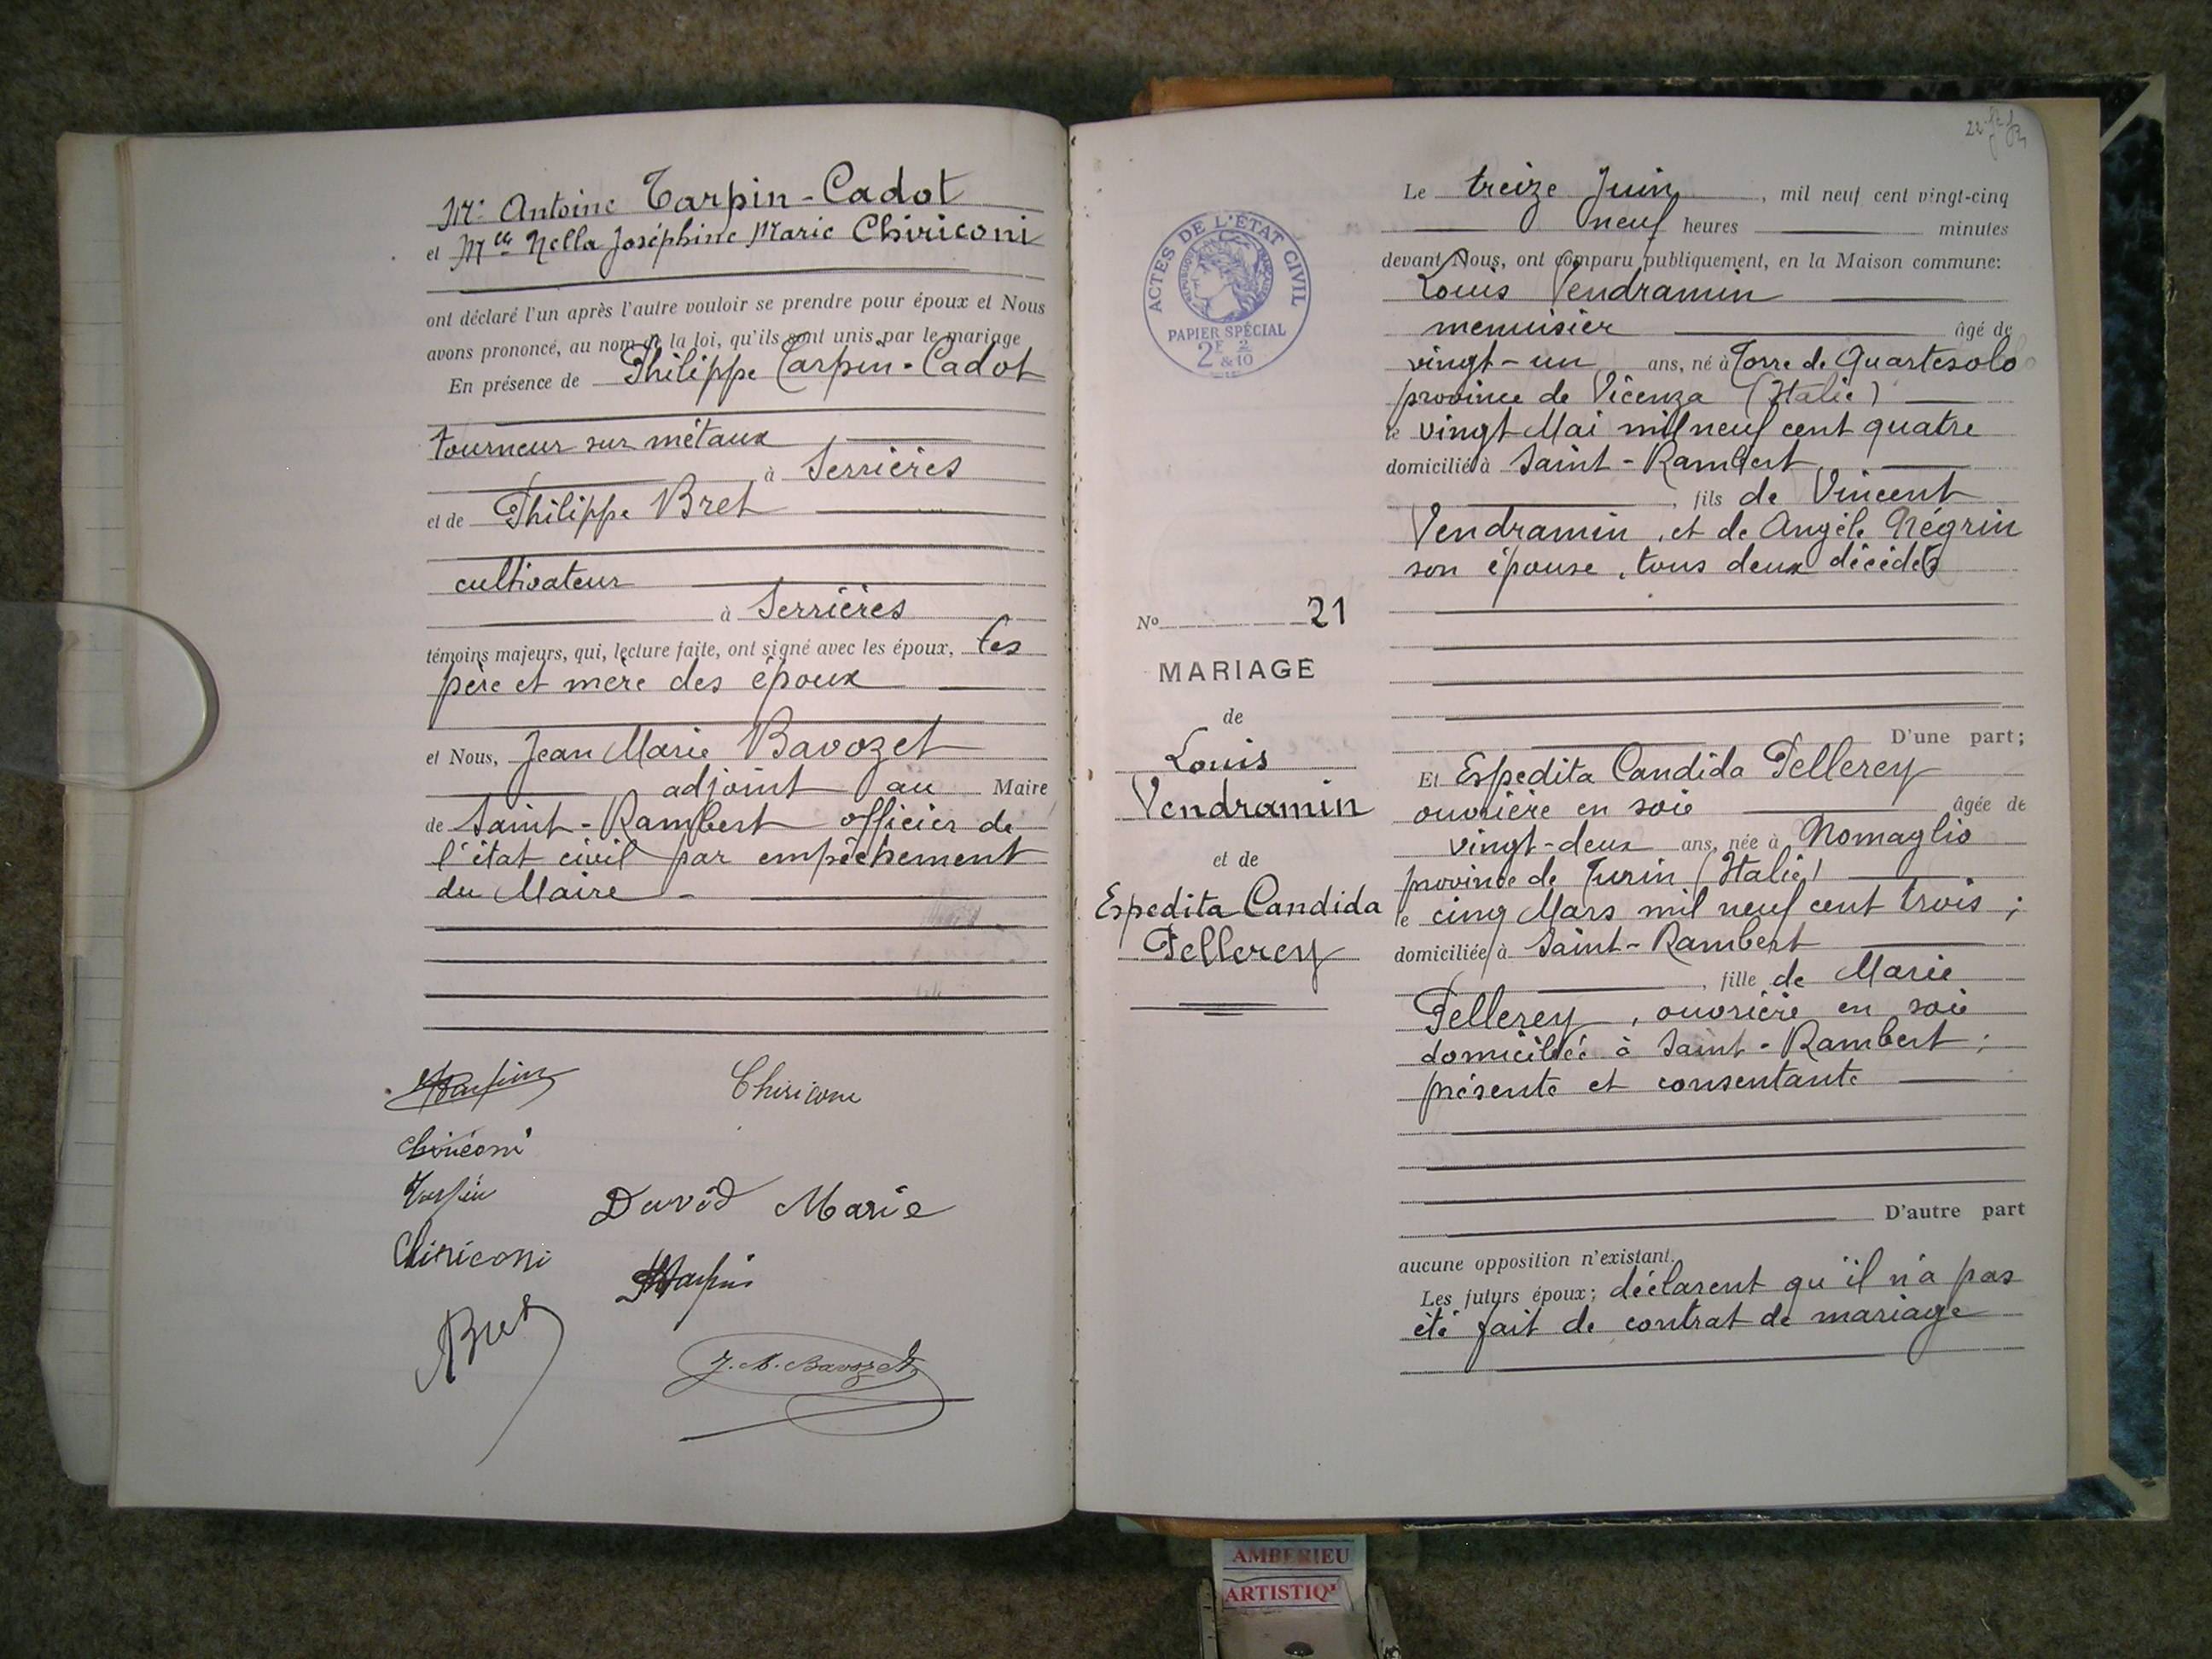 Mr Antoine Tarpin-Cadot
et Mlle Nella Joséphine Marie Chiriconi
ont déclaré l'un après l'autre vouloir se prendre pour époux et Nous
avons prononcé, au nom de la loi, qu'ils sont unis par le mariage
En présence de Philippe Tarpin-Cadot
tourneur sur métaux
à Serrières
et de Philippe Bret
cultivateur
à Serrières
témoins majeurs, qui, lecture faite, ont signé avec les époux, les
père et mère des époux
et Nous, Jean Marie Bavozet
adjoint au Maire
de Saint-Rambert officier de
l'état civil par empêchement
du Maire
Tarpin
Chiriconi
Chiriconi
Tarpin
David Marie
Chiriconi
Tarpin
Bret
J. M. Bavozet
ACTES DE L'ÉTAT CIVIL
PAPIER SPÉCIAL
2F & 2/10
No 21
MARIAGE
de
Louis
Vendramin
et de
Espedita Candida
Pellerey
Le treize Juin, mil neuf cent vingt-cinq
neuf heures minutes
devant Nous, ont comparu publiquement, en la Maison commune:
Louis Vendramin
menuisier âgé de
vingt-un ans, né à Torre de Quartesolo
province de Vicenza (Italie)
le vingt Mai mil neuf cent quatre
domicilié à Saint-Rambert
, fils de Vincent
Vendramin, et de Angèle Négrin
son épouse, tous deux décédés
D'une part;
Et Espedita Candida Pellerey
ouvrière en soie âgée de
vingt-deux ans, née à Nomaglio
province de Turin (Italie)
le cinq Mars mil neuf cent trois;
domiciliée à Saint-Rambert
, fille de Marie
Pellerey, ouvrière en soie
domiciliée à Saint-Rambert;
présente et consentante
D'autre part
aucune opposition n'existant.
Les futurs époux; déclarent qu'il n'a pas
été fait de contrat de mariage
AMBERIEU
ARTISTIQ